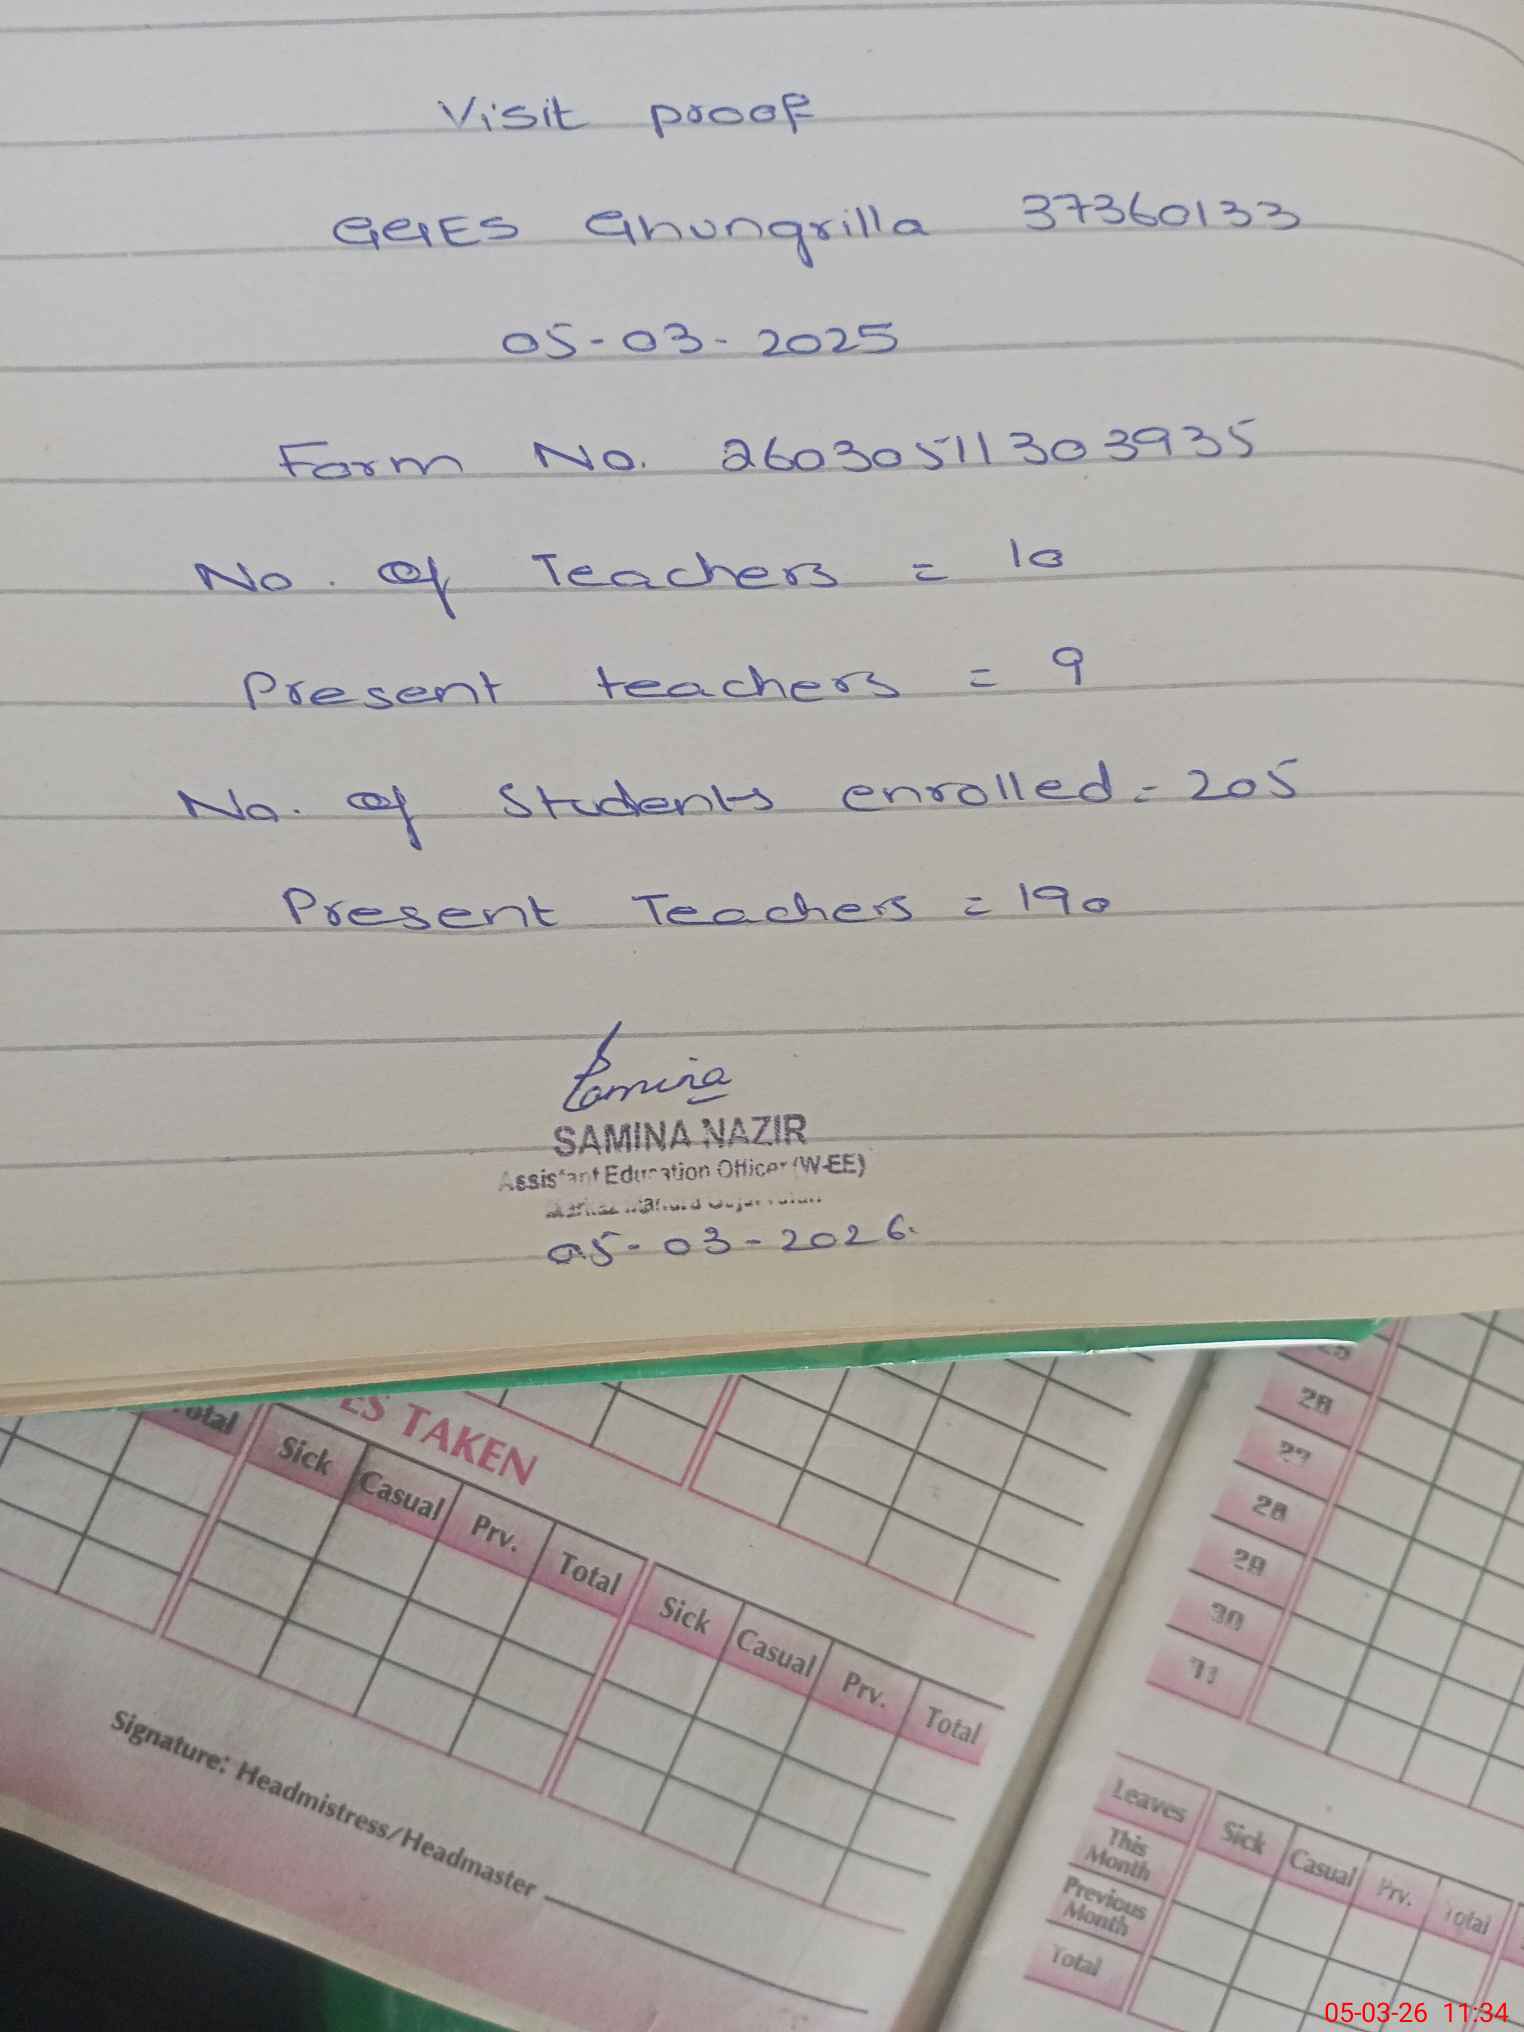 Visit proof
GGES Ghungrilla 37360133
05-03-2025
Form No. 26030511303935
No. of Teachers = 10
Present teachers = 9
No. of Students enrolled = 205
Present Teachers = 190
Samina
SAMINA NAZIR
Assistant Education Officer (W-EE)
05-03-2026.
ES TAKEN
Total Sick Casual Prv. Total Sick Casual Prv. Total
Signature: Headmistress/Headmaster
25
26
27
28
29
30
31
Leaves Sick Casual Prv. Total
This Month
Previous Month
Total
05-03-26 11:34